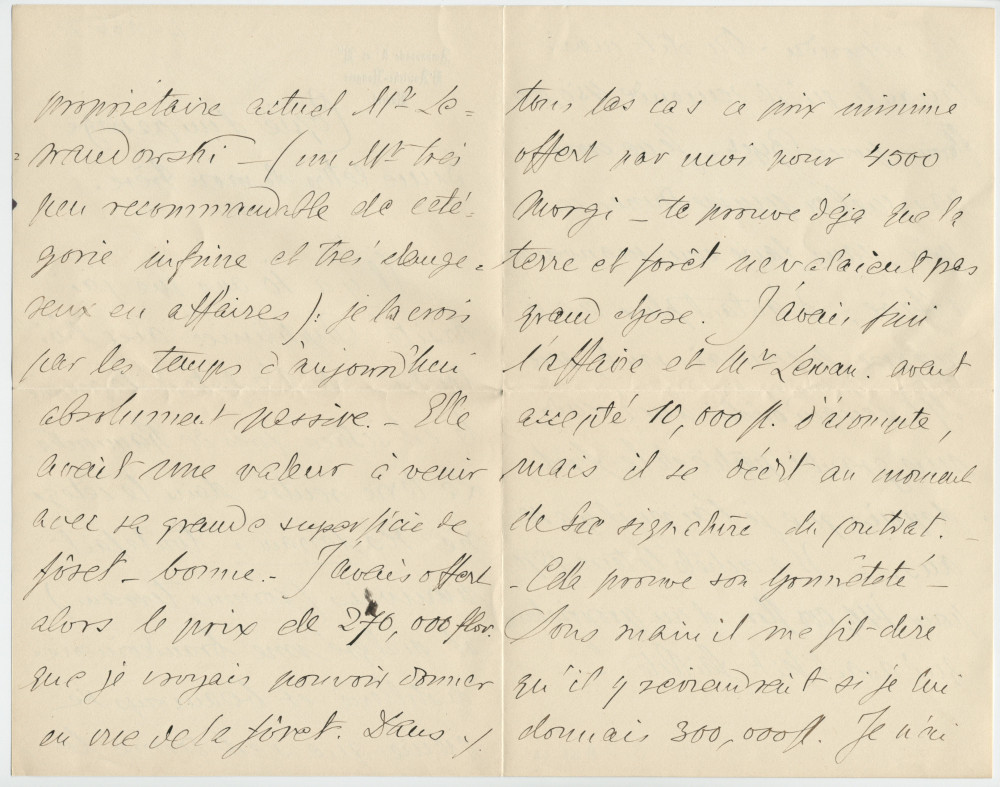 propriétaire actuel Mr Le-
wandowski – (un Mr très
peu recommandable de caté-
gorie infime et très dange-
reux en affaires): je la crois
par les temps d'aujourd'hui
absolument passive. – Elle
avait une valeur à venir
avec sa grande superficie de
fôret – bonne. – J'avais offert
alors le prix de 270,000 flor.
que je croyais pouvoir donner
en vue de la fôret. Dans ./.
tous las cas ce prix minime
offert par moi pour 4500
Morgi – te prouve déja que la
terre et forêt ne valaient pas
grand chose. J'avais fini
l'affaire et Mr Lewan. avait
accepté 10,000 fl. d'acompte,
mais il se dédit au moment
de la signature du contrat. –
– Cela prouve son honnêteté –
Sous main il me fit-dire
qu'il y reviendrait si je lui
donnais 300,000 fl. Je n'ai